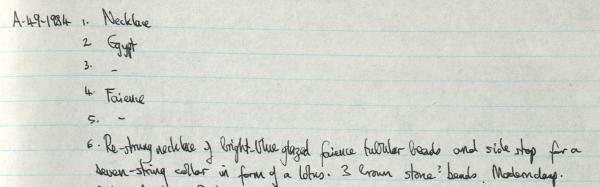 A-49-1984 1. Necklace
2 Egypt
3. -
4. Faience
5. -
6. Re-strung necklace of bright-blue glazed faience tubular beads and side stop for a
seven-string collar in form of a lotus. 3 brown stone? beads. Modern clasp.